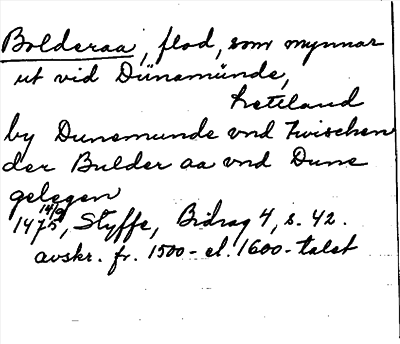 Bolderaa, flod, som mynnar
ut vid Dünamünde,
Lettland
by Dunemunde vnd zwischen
der Bulder aa vnd Dune
gelegen
14/9
1475, Styffe, Bidrag 4, s. 42.
avskr. fr. 1500- el. 1600-talet